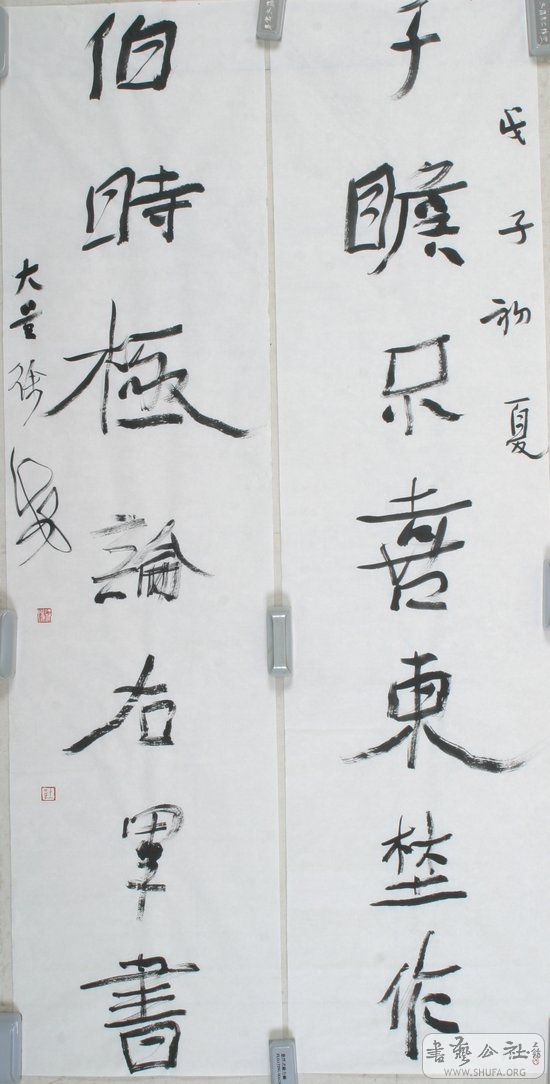 戊子初夏
子瞻只喜東埜作
伯時極論右軍書
大 徐
書藝公社
WWW.SHUFA.ORG